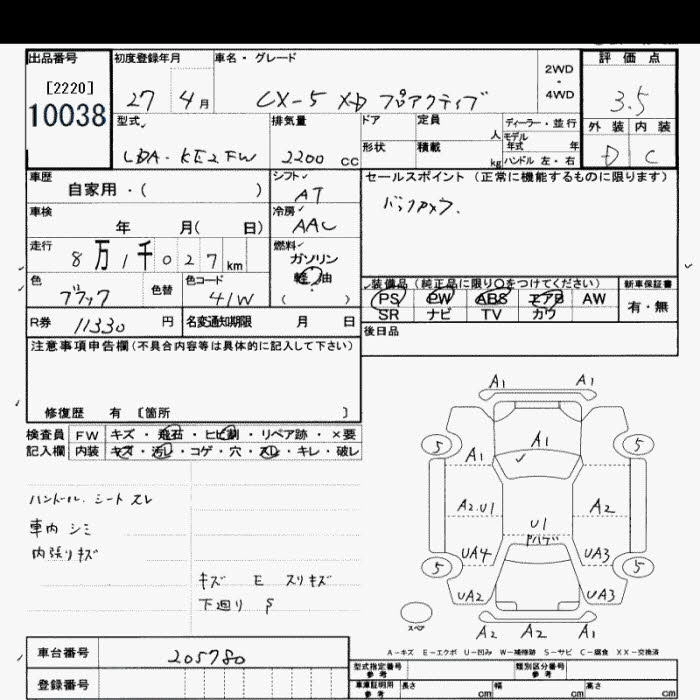 出品番号 初度登録年月 車名・グレード 2WD・4WD 評価点
[2220]
10038 27 4月 CX-5 XD プロアクティブ 3.5
型式 排気量 ドア 定員 人 ディーラー・並行 外装 内装
モデル年式 年
LDA-KE2FW 2200 cc 形状 積載 kg ハンドル 左・右 D C
車歴 シフト セールスポイント (正常に機能するものに限ります)
自家用・( ) AT バックカメラ.
車検 冷房
年 月( 日) AAC
走行 燃料
8万1千027km ガソリン
軽油
色 色替 色コード ( ) 装備品 (純正品に限り○をつけてください) 新車保証書
ブラック 41W PS PW ABS エアB AW 有・無
R券 11330 円 名変通知期限 月 日 SR ナビ TV カワ
注意事項申告欄(不具合内容等は具体的に記入して下さい) 後日品
修復歴 有 〔箇所 〕
検査員 FW キズ・飛石・ヒビ割・リペア跡・×要
記入欄 内装 キズ・汚レ・コゲ・穴・スレ・キレ・破レ
ハンドル. シート スレ
車内 シミ
内張りキズ
キズ E スリキズ
下廻り S
A1 A1
5 A1 5
A1
A2.U1 A2
U1
ドハゲ
5 UA4 UA3 5
UA2 UA3
スペア
A2 A2 A1
A-キズ E-エクボ U-凹み W-補修跡 S-サビ C-腐食 XX-交換済
車台番号 205780 型式指定番号 参考 類別区分番号 参考
登録番号 車庫証明用 参考 長さ cm 幅 cm 高さ cm